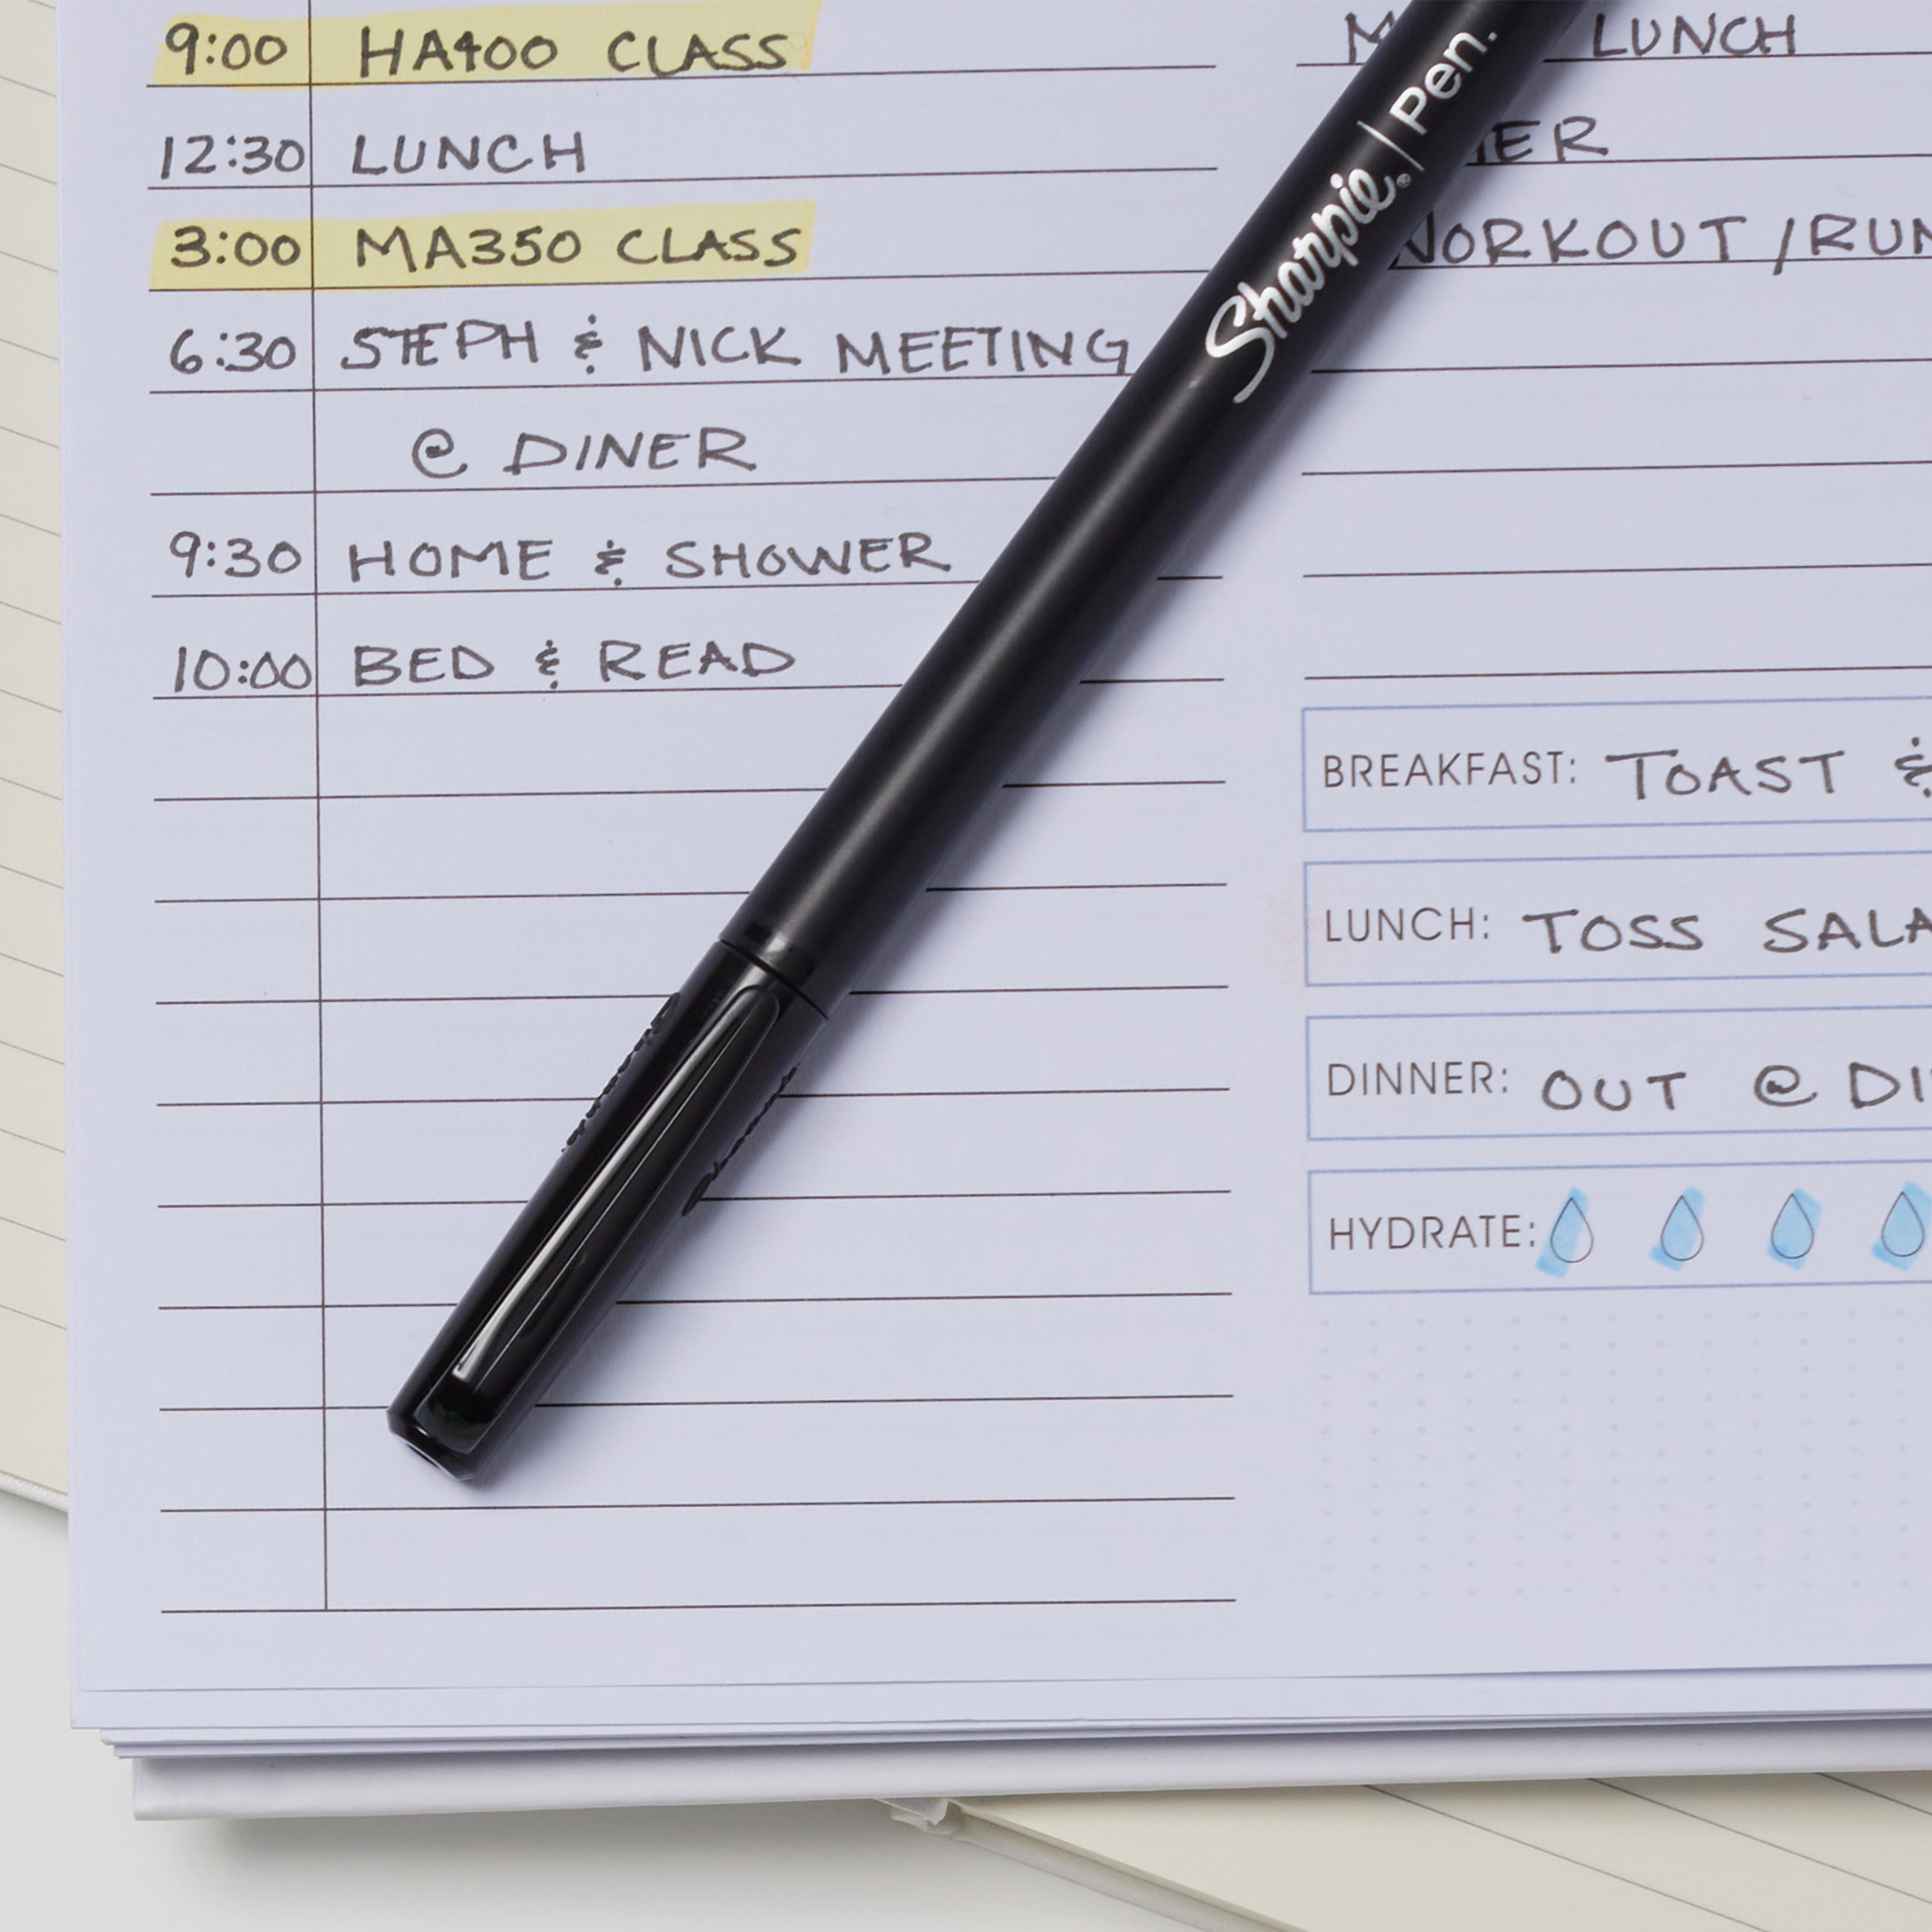 9:00 HA400 CLASS
12:30 LUNCH
3:00 MA350 CLASS
6:30 STEPH & NICK MEETING
@ DINER
9:30 HOME & SHOWER
10:00 BED & READ
LUNCH
WORKOUT / RUN
BREAKFAST: TOAST &
LUNCH: TOSS
DINNER: OUT @
HYDRATE:
Sharpie® | Pen.